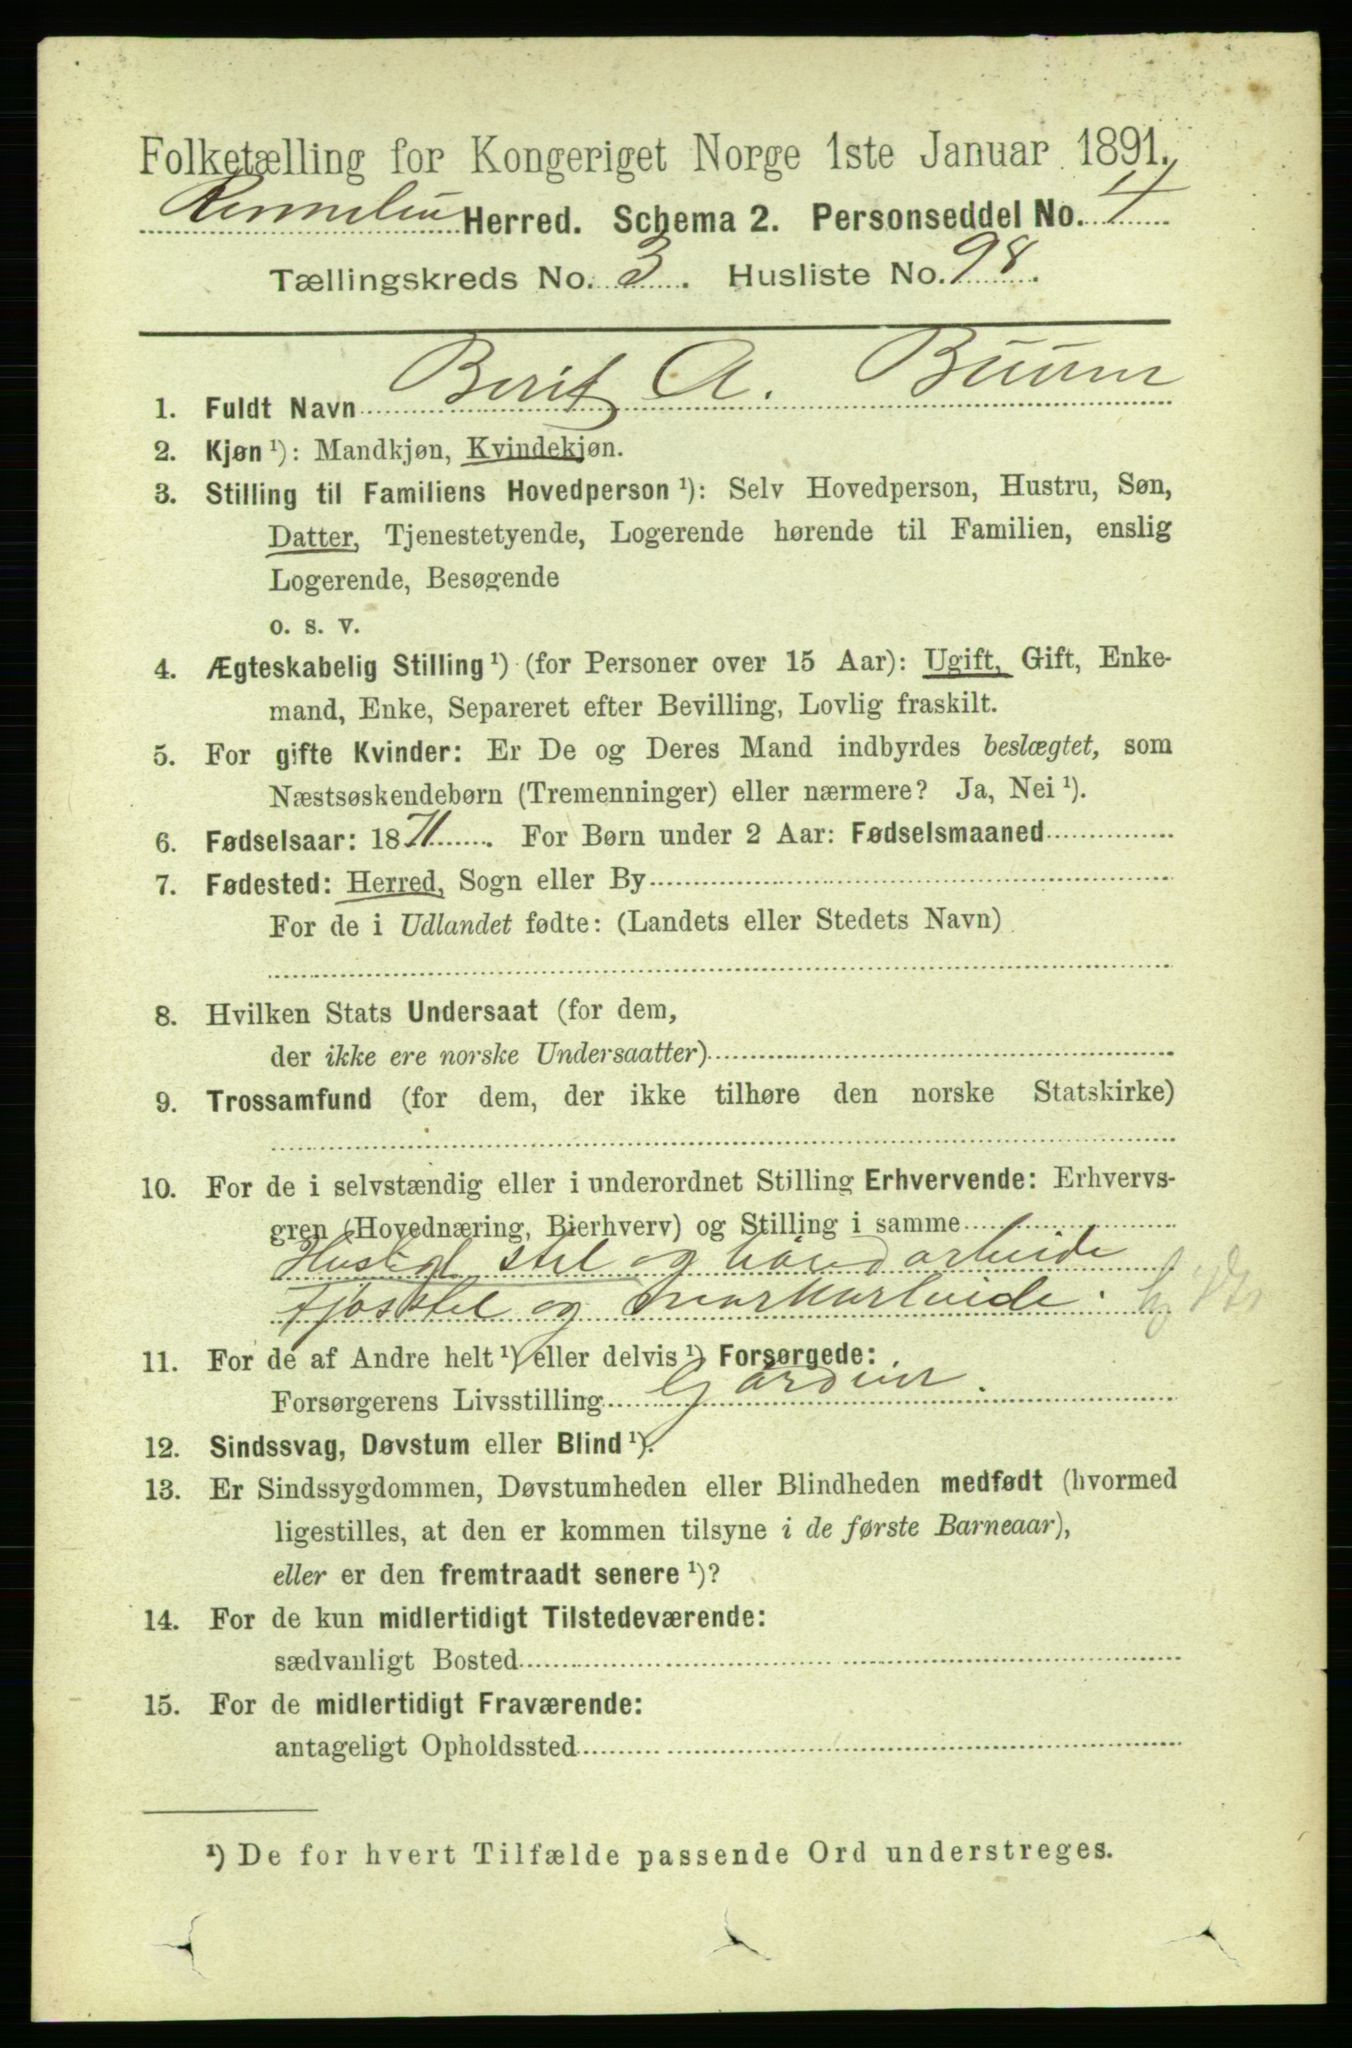 Folketælling for Kongeriget Norge 1ste Januar 1891.
Rennebu Herred. Schema 2. Personseddel No. 4
Tællingskreds No. 3. Husliste No. 98.
1. Fuldt Navn Berit A. Buvne
2. Kjøn ¹): Mandkjøn, Kvindekjøn.
3. Stilling til Familiens Hovedperson ¹): Selv Hovedperson, Hustru, Søn,
Datter, Tjenestetyende, Logerende hørende til Familien, enslig
Logerende, Besøgende
o. s. v.
4. Ægteskabelig Stilling ¹) (for Personer over 15 Aar): Ugift, Gift, Enke-
mand, Enke, Separeret efter Bevilling, Lovlig fraskilt.
5. For gifte Kvinder: Er De og Deres Mand indbyrdes beslægtet, som
Næstsøskendebørn (Tremenninger) eller nærmere? Ja, Nei ¹).
6. Fødselsaar: 1871. For Børn under 2 Aar: Fødselsmaaned
7. Fødested: Herred, Sogn eller By
For de i Udlandet fødte: (Landets eller Stedets Navn)
8. Hvilken Stats Undersaat (for dem,
der ikke ere norske Undersaatter)
9. Trossamfund (for dem, der ikke tilhøre den norske Statskirke)
10. For de i selvstændig eller i underordnet Stilling Erhvervende: Erhvervs-
gren (Hovednæring, Bierhverv) og Stilling i samme
Husligt stel og håndarbeide
fjøsstel og markarbeide.
11. For de af Andre helt ¹) eller delvis ¹) Forsørgede:
Forsørgerens Livsstilling Gårdeier.
12. Sindssvag, Døvstum eller Blind ¹).
13. Er Sindssygdommen, Døvstumheden eller Blindheden medfødt (hvormed
ligestilles, at den er kommen tilsyne i de første Barneaar),
eller er den fremtraadt senere ¹)?
14. For de kun midlertidigt Tilstedeværende:
sædvanligt Bosted
15. For de midlertidigt Fraværende:
antageligt Opholdssted
¹) De for hvert Tilfælde passende Ord understreges.